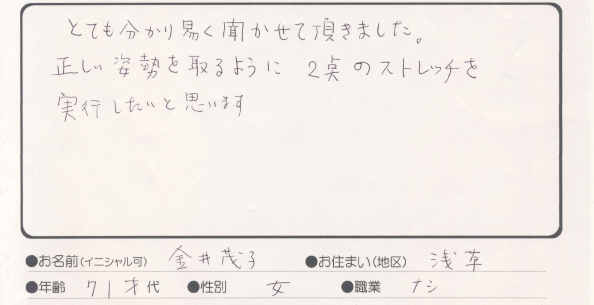 とても分かり易く聞かせて頂きました。
正しい姿勢を取るように 2点のストレッチを
実行したいと思います
●お名前(イニシャル可) 金井茂子 ●お住まい(地区) 浅草
●年齢 71才代 ●性別 女 ●職業 ナシ